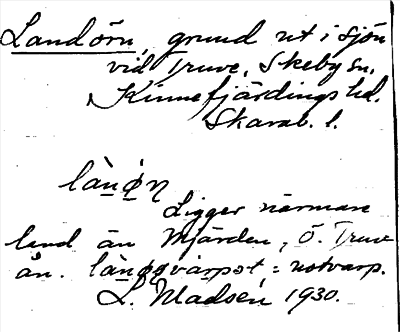 Landörn, grund ut i sjön
vid Truve, Skeby sn,
Kinnefjärdings hd.
Skarab. l.
làn̠ø̠n
Ligger närmare
land än Mjärden, Ö. Truve
ån. làn̠øsvárpət = notvarp.
L. Madsén 1930.